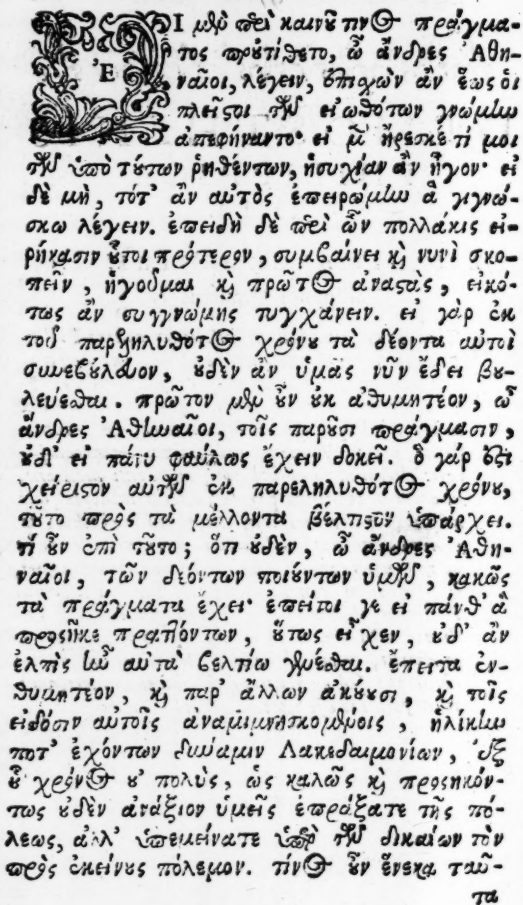 ΕΙ μὲν περὶ καινοῦ τινος πράγμα-
τος προὐτίθετο, ὦ ἄνδρες Ἀθη-
ναῖοι, λέγειν, ἐπιχὼν ἂν ἕως οἱ
πλεῖστοι τῶν εἰωθότων γνώμην
ἀπεφήναντο· εἰ μὲν ἤρεσκέ τί μοι
τῶν ὑπὸ τούτων ῥηθέντων, ἡσυχίαν ἂν ἦγον· εἰ
δὲ μὴ, τότ' ἂν αὐτὸς ἐπειρώμην ἃ γιγνώ-
σκω λέγειν. ἐπειδὴ δὲ περὶ ὧν πολλάκις εἰ-
ρήκασιν οὗτοι πρότερον, συμβαίνει καὶ νυνὶ σκο-
πεῖν, ἡγοῦμαι καὶ πρῶτος ἀναστὰς, εἰκό-
τως ἂν συγγνώμης τυγχάνειν. εἰ γὰρ ἐκ
τοῦ παρεληλυθότος χρόνου τὰ δέοντα αὐτοὶ
συνεβούλευον, οὐδὲν ἂν ὑμᾶς νῦν ἔδει βου-
λεύεσθαι. πρῶτον μὲν οὖν οὐκ ἀθυμητέον, ὦ
ἄνδρες Ἀθηναῖοι, τοῖς παροῦσι πράγμασιν,
οὐδ' εἰ πάνυ φαύλως ἔχειν δοκεῖ. ὃ γάρ ἐστι
χείριστον αὐτῶν ἐκ παρεληλυθότος χρόνου,
τοῦτο πρὸς τὰ μέλλοντα βέλτιστον ὑπάρχει.
τί οὖν ἐστὶ τοῦτο; ὅτι οὐδὲν, ὦ ἄνδρες Ἀθη-
ναῖοι, τῶν δεόντων ποιούντων ὑμῶν, κακῶς
τὰ πράγματα ἔχει· ἐπείτοι γε εἰ πάνθ' ἃ
προσῆκε πραττόντων, οὕτως εἶχεν, οὐδ' ἂν
ἐλπὶς ἦν αὐτὰ βελτίω γενέσθαι. ἔπειτα ἐν-
θυμητέον, καὶ παρ' ἄλλων ἀκούουσι, καὶ τοῖς
εἰδόσιν αὐτοῖς ἀναμιμνησκομένοις, ἡλίκην
ποτ' ἐχόντων δύναμιν Λακεδαιμονίων, ἐξ
οὗ χρόνος οὐ πολὺς, ὡς καλῶς καὶ προσηκόν-
τως οὐδὲν ἀνάξιον ὑμεῖς ἐπράξατε τῆς πό-
λεως, ἀλλ' ὑπεμείνατε ὑπὲρ τῶν δικαίων τὸν
πρὸς ἐκείνους πόλεμον. τίνος οὖν ἕνεκα ταῦ-
τα